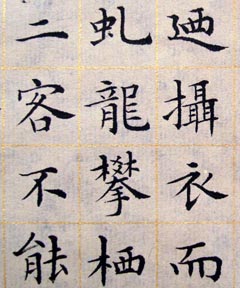 廼攝衣而
虬龍攀栖
二客不能